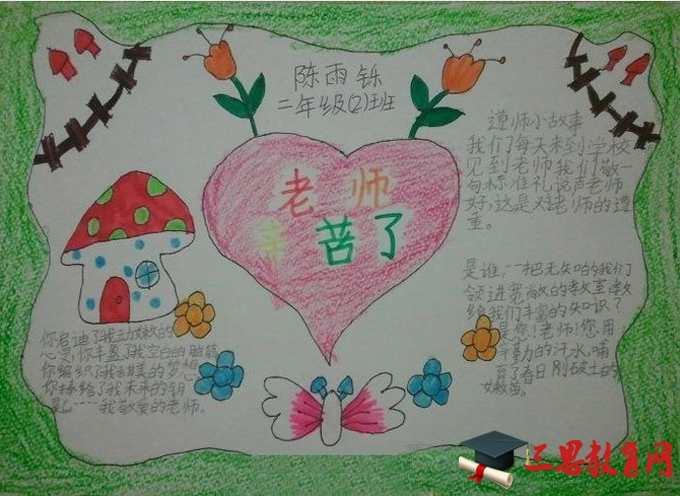 陈雨铄
二年级(2)班
老师
辛苦了
遵师小故事
我们每天来到学校
见到老师我们敬一
句标准礼说声老师
好,这是对老师的遵
重。
是谁,一把无知的我们
领进宽敞的教室,教
给我们丰富的知识?
是您!老师!您用
辛勤的汗水,哺
育了春日刚破土的
嫩苗。
你启迪了我幼嫩的
心灵,你丰富了我空白的脑筋
你编织了我甜美的梦想
你接给了我未来的钥
我敬爱的老师。
三思教育网